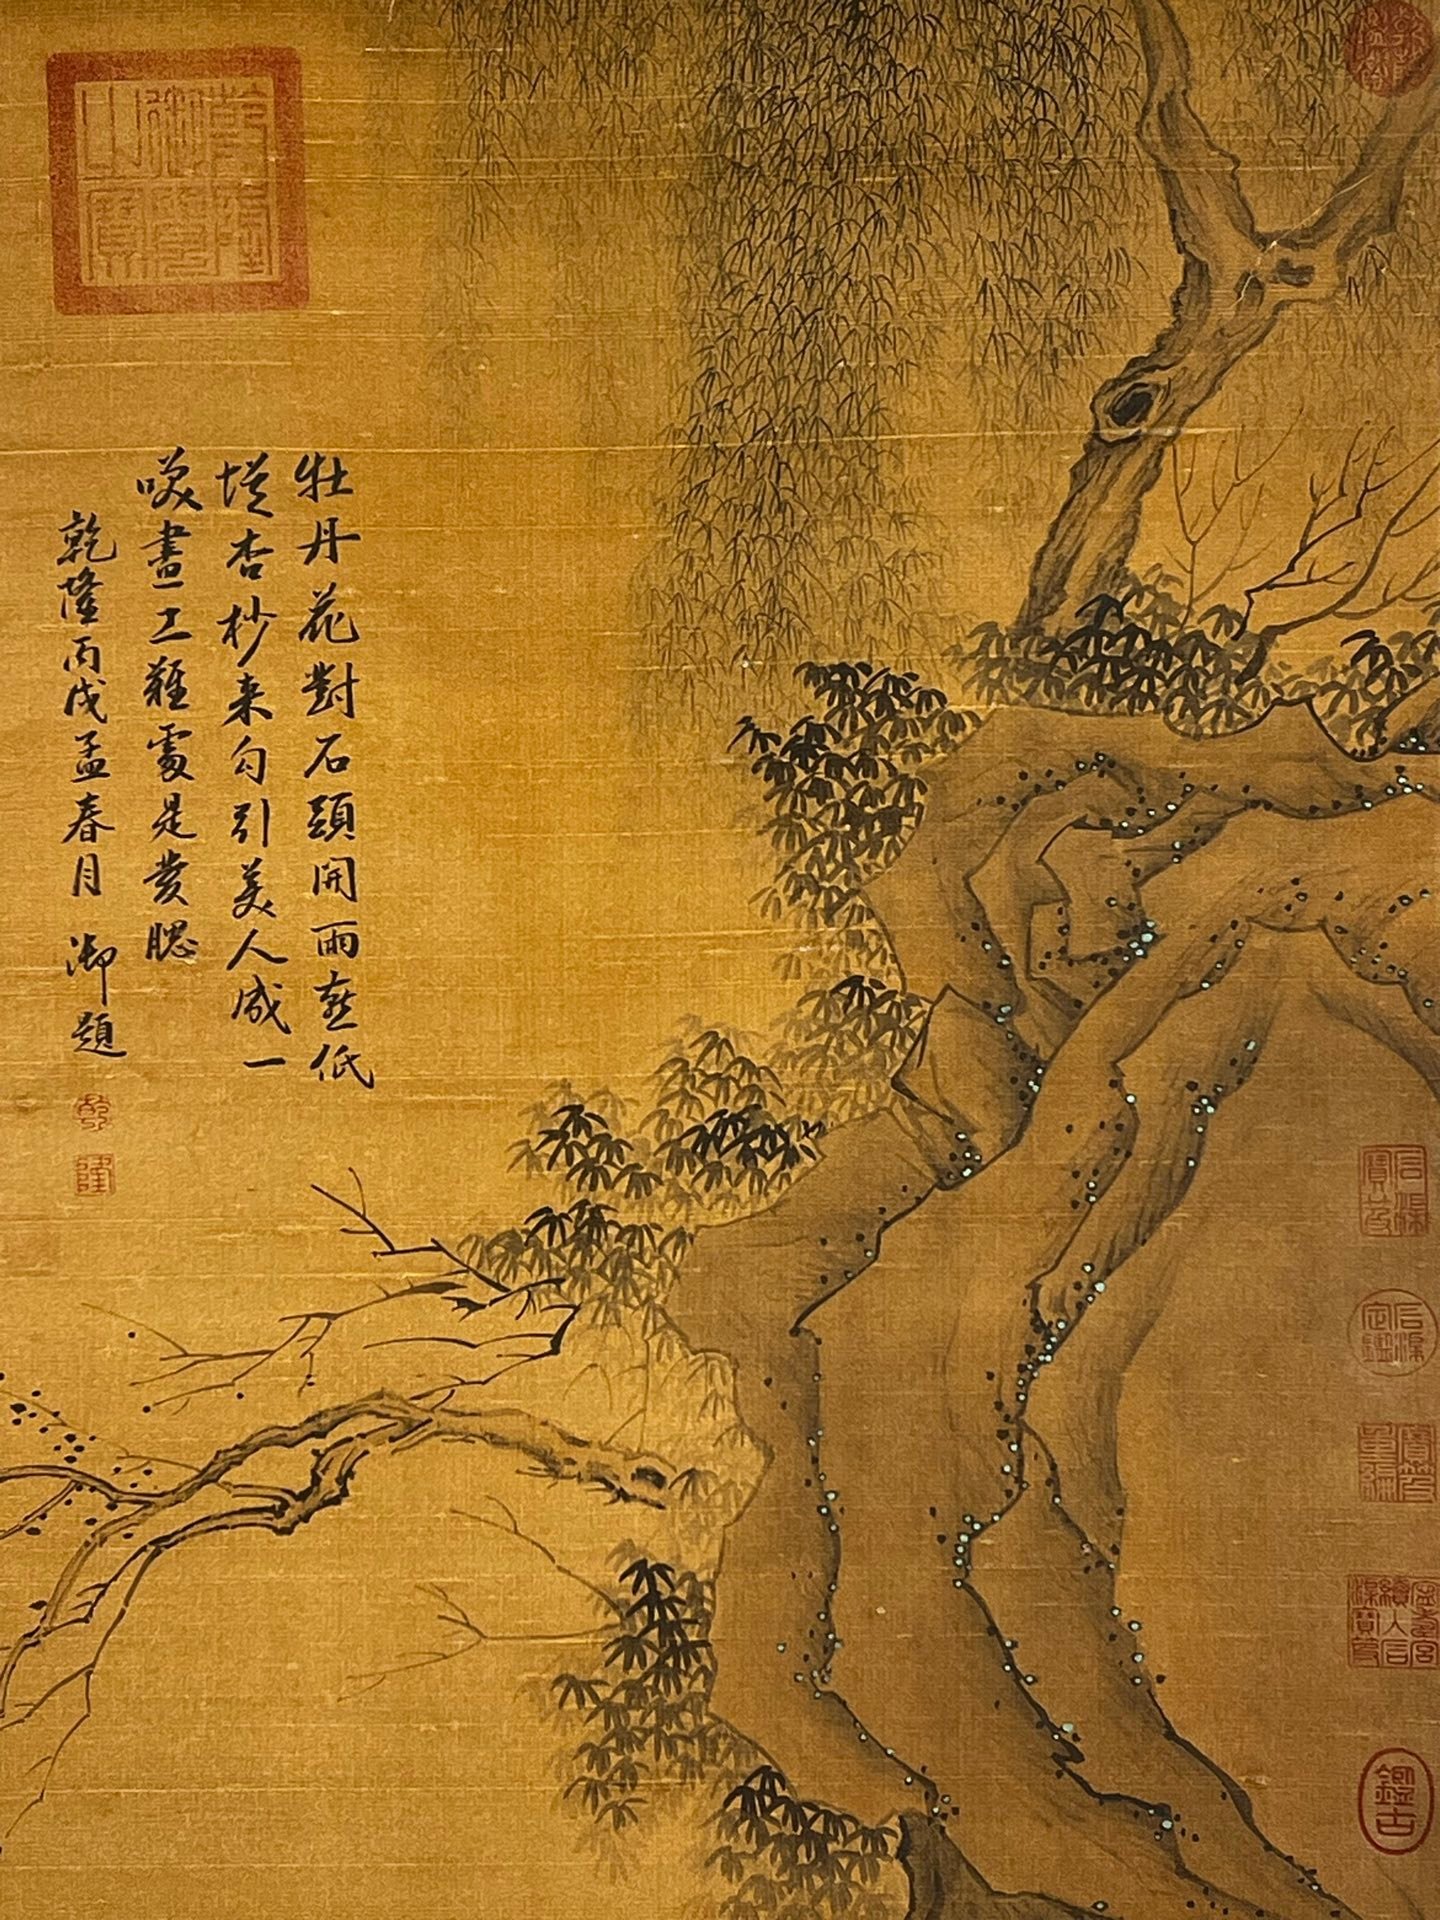 乾隆御覽之寶
牡丹花對石頭開雨燕低
從杏杪来勾引美人成一
咲畫工難處是雙腮
乾隆丙戌孟春月 御題
乾
隆
乾隆鑑賞
石渠寶笈
石渠定鑑
寶笈重編
寧壽宮續入石渠寶笈
鑑古